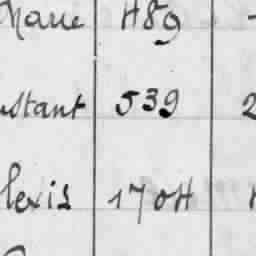 Marie 489 -
ustant 539 2
lexis 1704